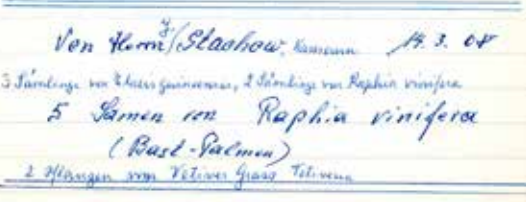 Von Herrn Stachow, Kamerun 14. 3. 08
3 Sämlinge von Elaeis guineensis, 2 Sämlinge von Raphia vinifera
5 Samen von Raphia vinifera
(Bast-Palmen)
2 Pflanzen von Vetiver Grass